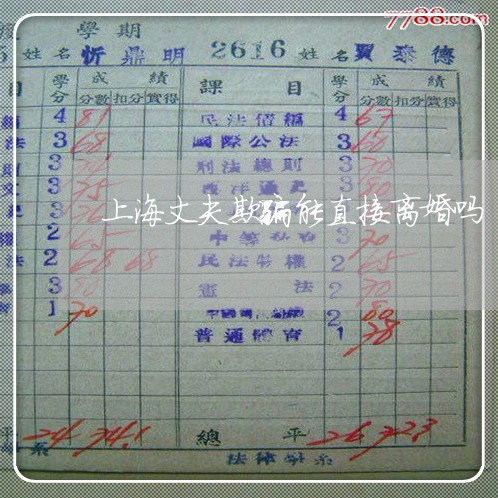 7788.com
學期
5 姓名 忻鼎明 2616 姓名 賈泰德
目 學分 成績 課目 學分 成績
分數 扣分 實得 分數 扣分 實得
4 81 民法債編 4 67
法 3 68 國際公法 3 60
3 刑法總則 3 70
文 3 75 西洋通史 3
上海丈夫欺骗能直接离婚吗
2 65 3 70
法 2 68 68 民法物權 2 65
3 80 憲法 2 70
1 70 2 80
普通體育 1 78
24 74.1 總平 26 72.3
系 法律學系